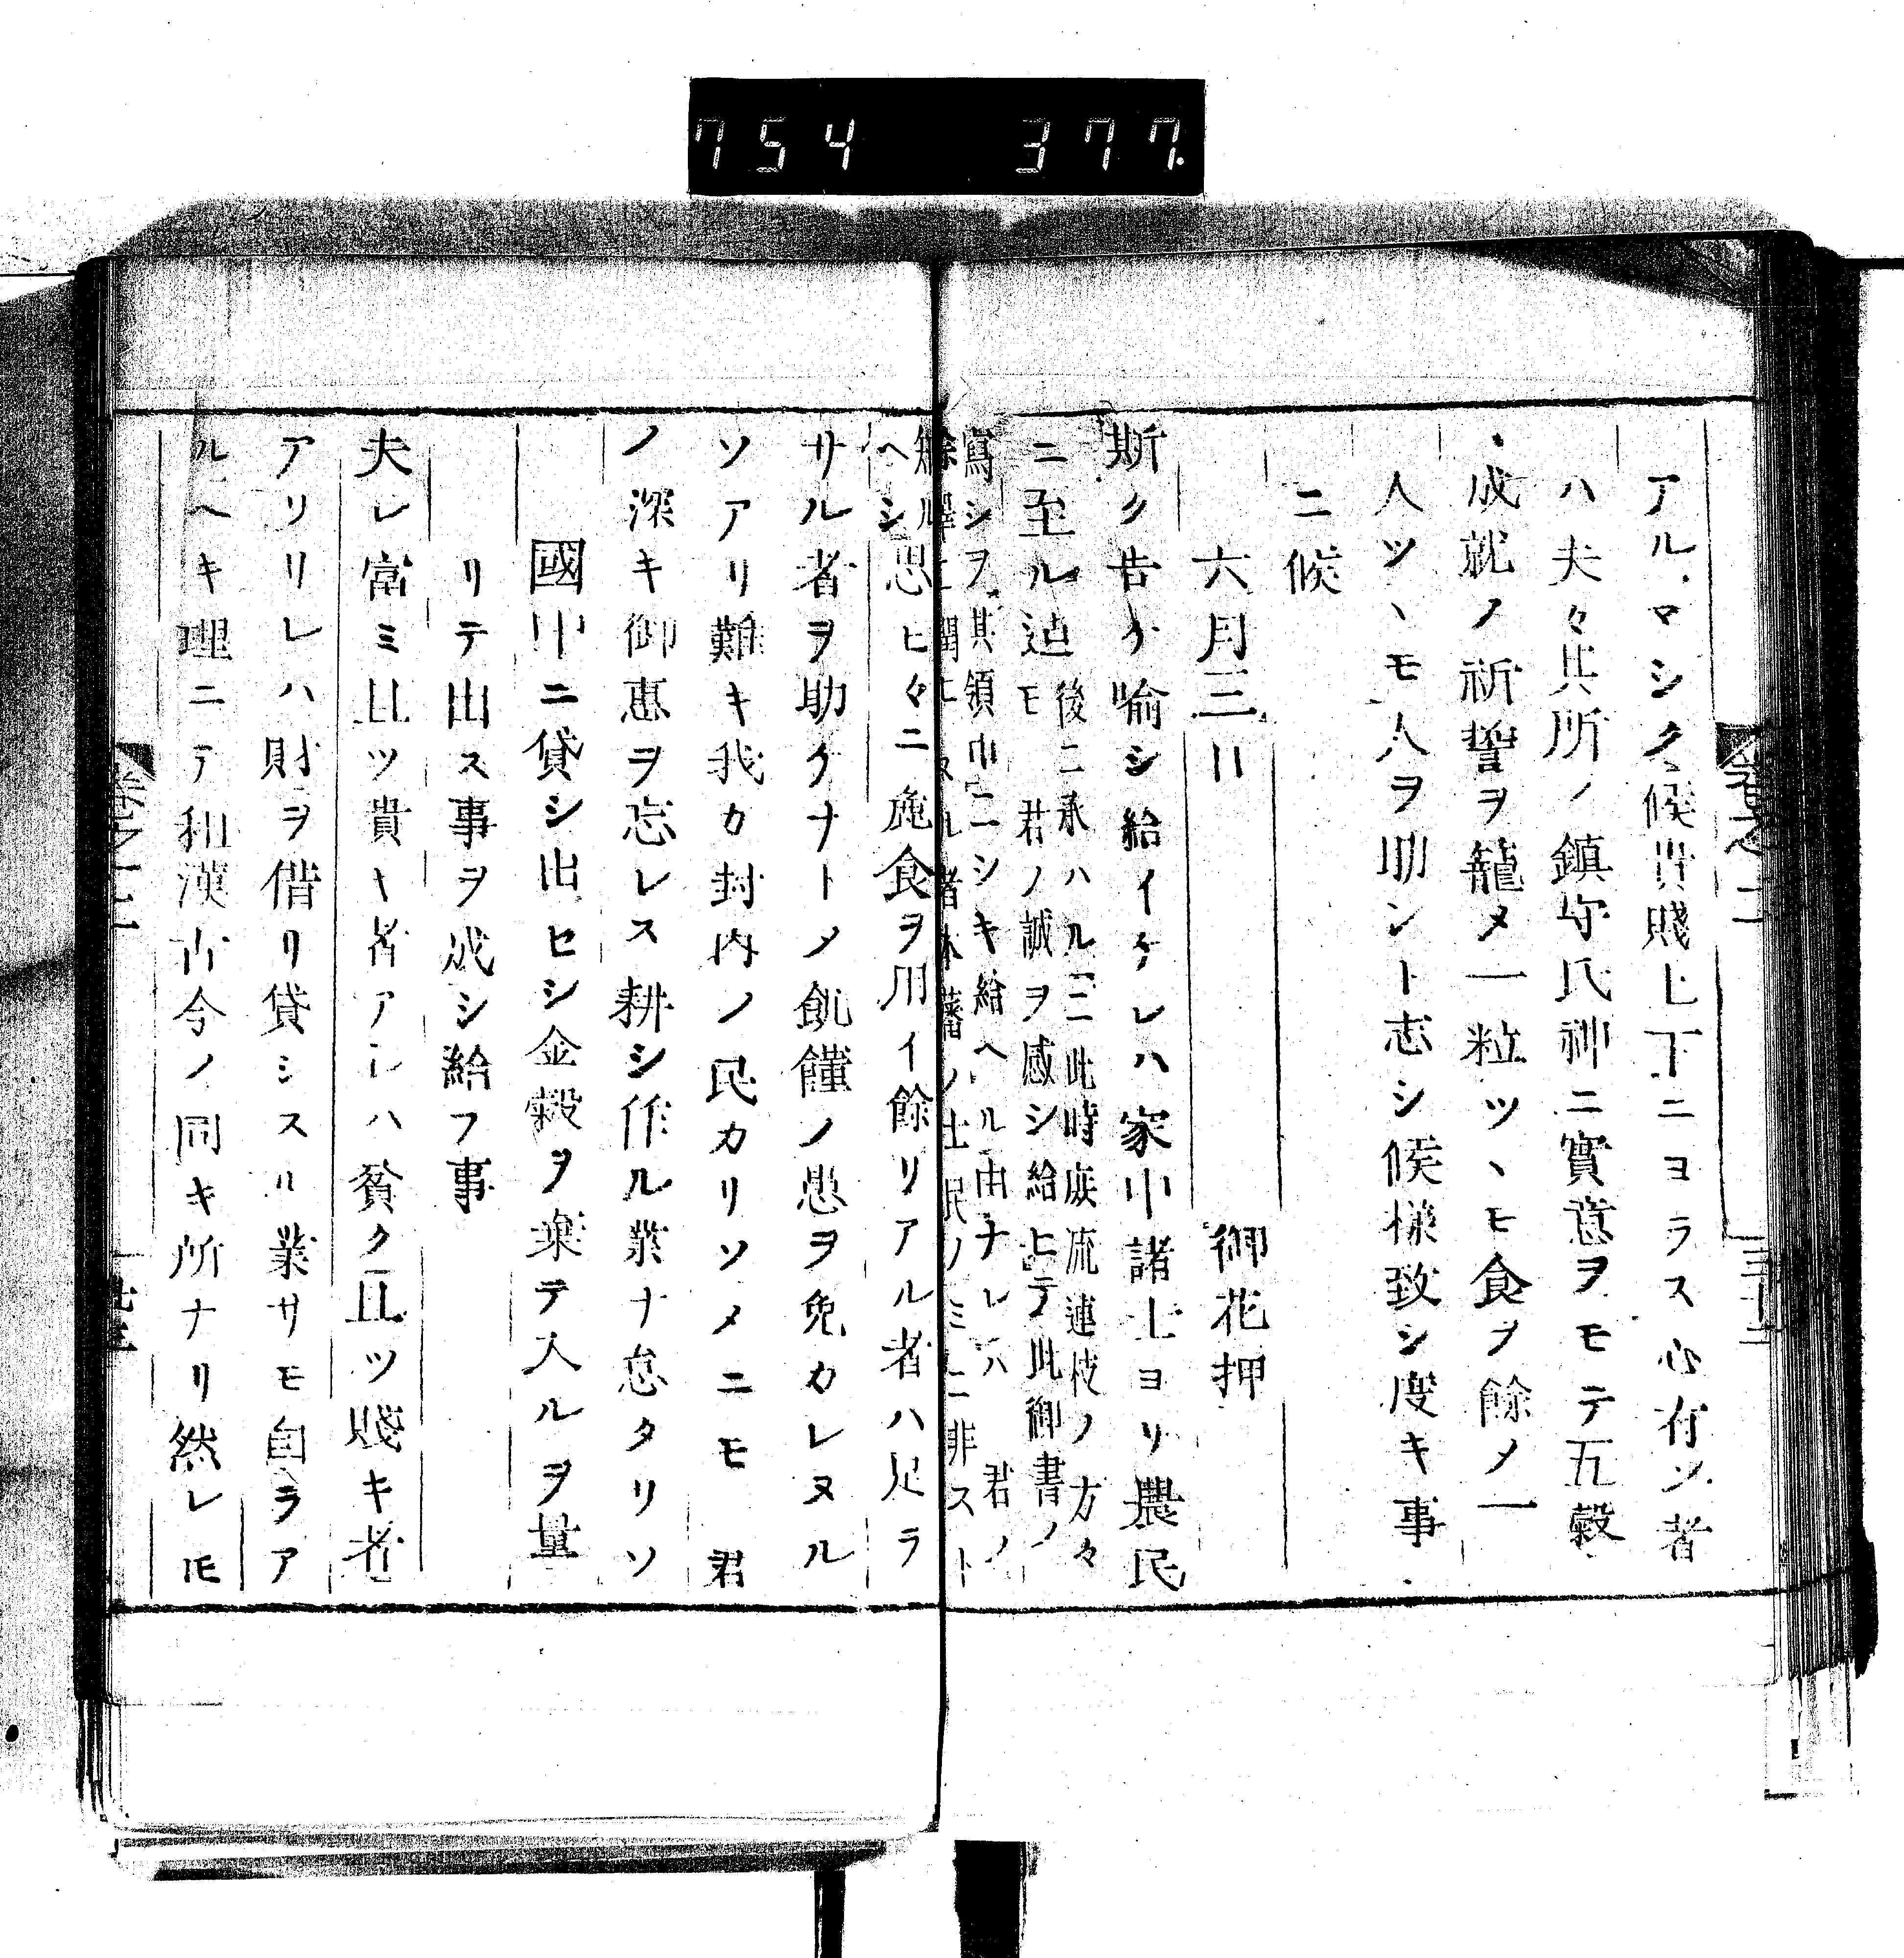 754 377.
アルマシク候貴賤上下ニヨラス心有ン者
ハ夫々其所ノ鎮守氏神ニ實意ヲモテ五穀
成就ノ祈誓ヲ籠メ一粒ツヽモ食ヲ餘メ一
人ツヽモ人ヲ助ント志シ候様致シ度キ事
ニ候
六月三日
御花押
斯ク告ケ喩シ給イケレハ家中諸士ヨリ農民
ニ至ル迠モ
後ニ承ハルニ此時庶流連枝ノ方々
君ノ誠ヲ感シ給ヒテ此御書ノ
寫シヲ其領巾ニシキ給ヘル由ナレハ 君ノ
者本藩ノ士民ノミニ非スト
ヘシ
思ヒ々ニ施食ヲ用イ餘リアル者ハ足ラ
サル者ヲ助クナトメ飢饉ノ患ヲ免カレヌル
ソアリ難キ我カ封内ノ民カリソメニモ 君
ノ深キ御惠ヲ忘レス耕シ作ル業ナ怠タリソ
國中ニ貸シ出セシ金穀ヲ棄テ入ルヲ量
リテ出ス事ヲ成シ給フ事
夫レ富ミ且ツ貴キ者アレハ貧ク且ツ賤キ者
アリリレハ財ヲ借リ貸シスル業サモ自ラア
ルヘキ理ニテ和漢古今ノ同キ所ナリ然レ𪜈
卷之二
三十二